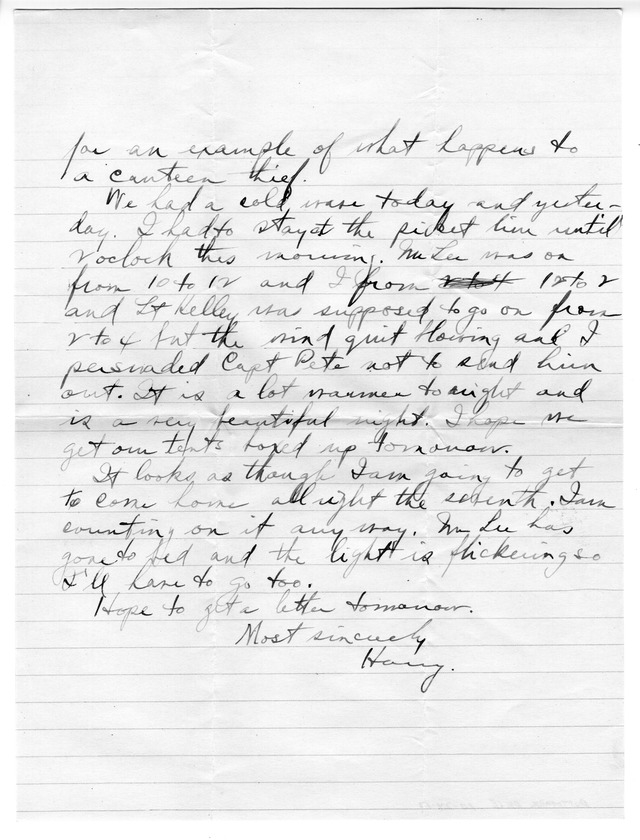 for an example of what happens to
a canteen thief.
We had a cold wave today and yester-
day. I had to stay at the picket line until
2 oclock this morning. Mr Lee was on
from 10 to 12 and I from 2 to 4 12 to 2
and Lt Kelley was supposed to go on from
2 to 4 but the wind quit blowing and I
persuaded Capt Pete not to send him
out. It is a lot warmer tonight and
is a very beautiful night. I hope we
get our tents boxed up tomorrow.
It looks as though I am going to get
to come home all right the seventh. I am
counting on it any way. Mr Lee has
gone to bed and the light is flickering so
I'll have to go too.
Hope to get a letter tomorrow.
Most sincerely
Harry.